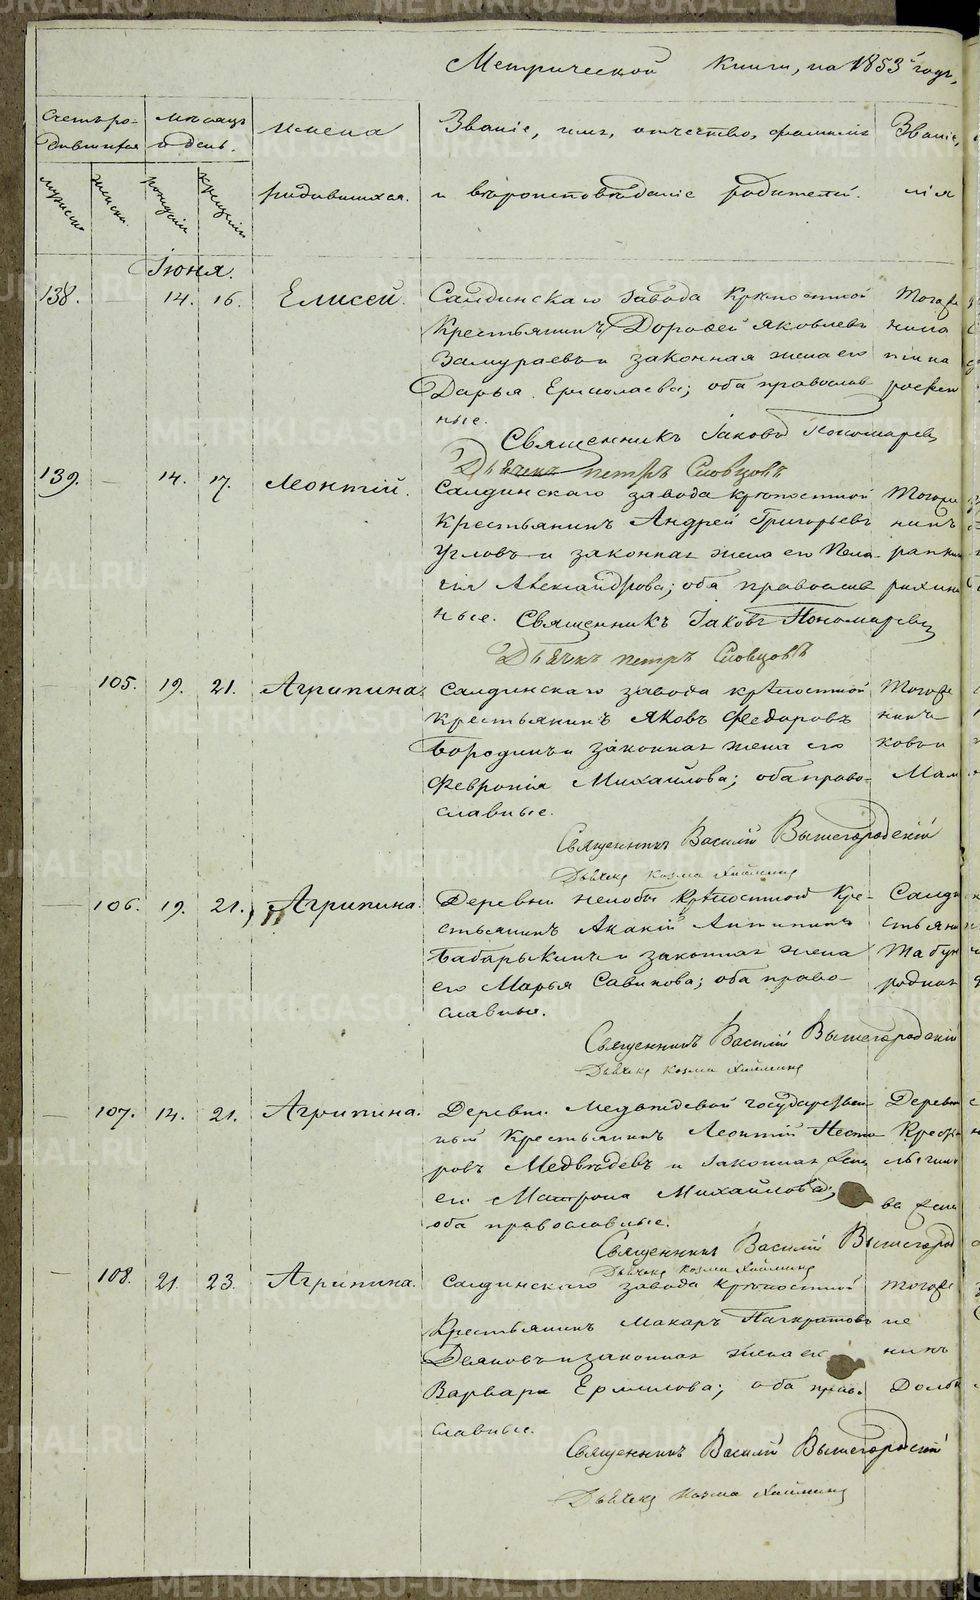 Метрической книги, на 1853 годъ,
Счетъ ро-
дившихся
Мѣсяцъ
и день.
Имена
родившихся.
Званіе, имя, отчество, фамилія
и вѣроисповѣданіе родителей.
Званіе,
мужеска
женска.
рожденія
крещенія
Іюня.
138. — 14. 16. Елисей. Салдинскаго завода крѣпостной Тогоже
Крестьянинъ Дорофей Яковлевъ
Замураевъ и законная жена его
Дарья Ермолаева; оба православ-
ные.
Священникъ Іаковъ Пономаревъ
Дьячекъ петръ Словцовъ
139. — 14. 17. Леонтій. Салдинскаго завода крѣпостной Тогоже
крестьянинъ Андрей Григорьевъ
Угловъ и законная жена его Пела-
гія Александрова; оба православ-
ные. Священникъ Іаковъ Пономаревъ
Дьячкъ петръ Словцовъ
105. 19. 21. Агрипина. Салдинскаго завода крѣпостной Тогоже
крестьянинъ Яковъ Федоровъ
Бородинъ и законная жена его
Февронія Михайлова; оба право-
славные.
Священникъ Василій Вышегородскій
Дьячекъ Козма
— 106. 19. 21. Агрипина. Деревни Нелобы Крѣпостной Кре-
стьянинъ Акакій Антипинъ
Бабарыкинъ и законная жена
его Марья Савинова; оба право-
славные.
Священникъ Василій Вышегородскій
Дьячекъ Козма
— 107. 14. 21. Агрипина. Деревни Медвѣдевой государствен-
ный Крестьянинъ Леонтій Несто-
ровъ Медвѣдевъ и законная жена
его Матрона Михайлова;
оба православные.
Священникъ Василій Вышегород
Дьячекъ Козма
— 108. 21. 23. Агрипина. Салдинскаго завода крѣпостной Тогоже
Крестьянинъ Макаръ Панкратовъ
Деяновъ и законная жена его
Варвара Ермилова; оба право-
славные.
Священникъ Василій Вышегородскій
Дьячекъ Козма
METRIKI.GASO-URAL.RU